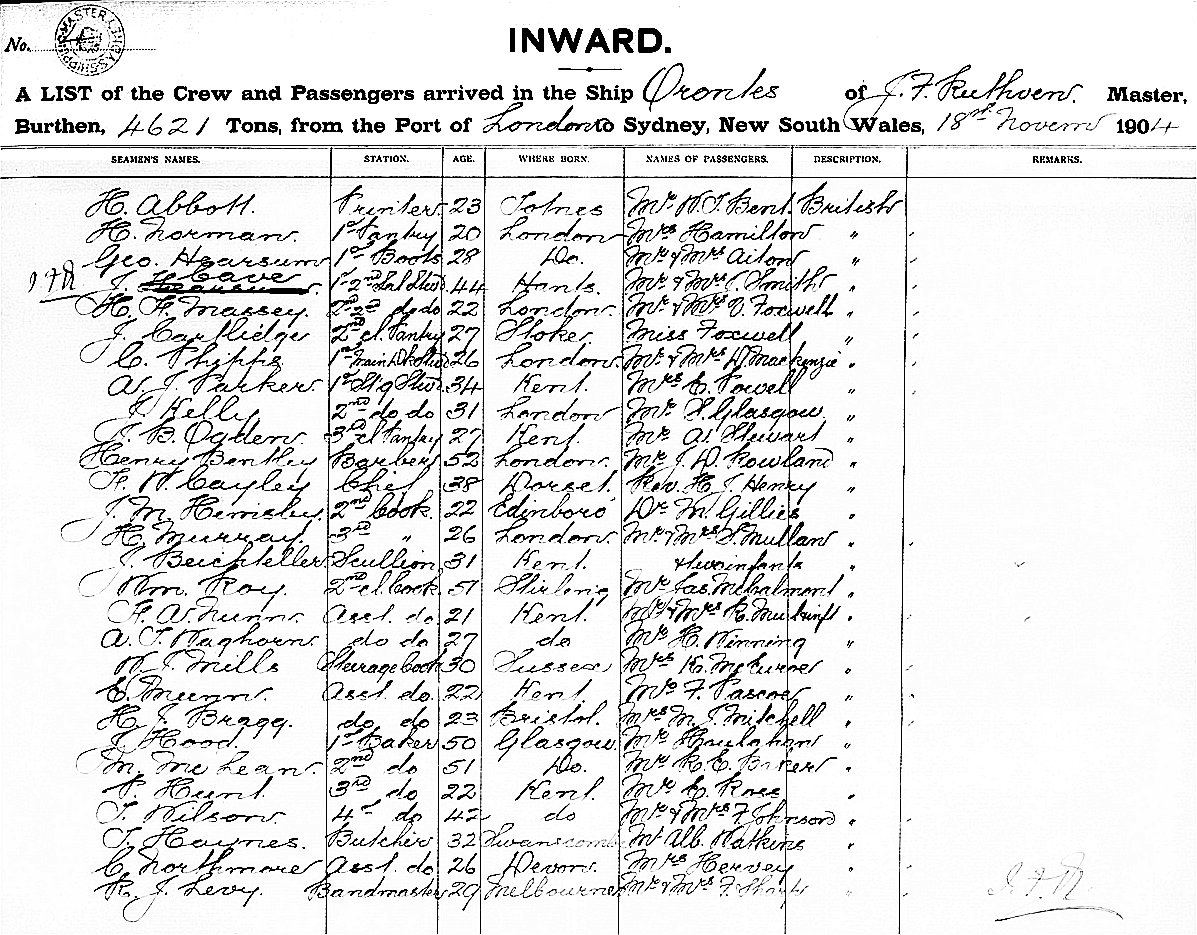 No.
MASTER
SHIPPING
INWARD.
A LIST of the Crew and Passengers arrived in the Ship Orontes of J. F. Ruthven. Master,
Burthen, 4621 Tons, from the Port of London to Sydney, New South Wales, 18th Novem 1904
SEAMEN'S NAMES. STATION. AGE. WHERE BORN. NAMES OF PASSENGERS. DESCRIPTION. REMARKS.
H. Abbott. Printer 23 Totnes Mr. W. T. Bent British
H. Norman. 1st Pantry 20 London Mrs Hamilton "
Geo. Hearsum 1st Boots 28 Do. Mr & Mrs Aiton "
J. Cave 1st 2nd Sal Stwd 44 Hants. Mr & Mrs Smith "
H. F. Massey. 2nd do do 22 London. Mr & Mrs Foxwell "
J. Cartlidge 2nd cl. Pantry 27 Stoke. Miss Foxwell "
C. Phipps 1st 26 London. Mr & Mrs D. Mackenzie "
A. J. Parker 1st Stg Stwd 34 Kent. Mrs E. Powell "
J. Kelly 2nd do do 31 London Mr S. Glasgow. "
J. B. Ogden. 3rd cl Pantry 27 Kent. Mr A. Stewart "
Henry Bentley Barber 52 London. Mr J. D. Rowland "
F. W. Cayley Chef 38 Dorset. Rev. H. J. Henry "
J. M. Hemsley. 2nd Cook. 22 Edinboro' Dr M. Gillies "
H. Murray. 3rd " 26 London. Mr & Mrs S. Mullan "
J. Scullion 31 Kent. & two infants "
Wm. Roy. 2nd cl. Cook. 51 Stirling Mr Jas. McCalmont "
F. A. Nunn Asst. do. 21 Kent. Mr & Mrs "
A. T. Waghorn do do 27 do Mr H. Winning "
W. J. Mills Steerage Cook 30 Sussex Mrs K. "
E. Munn. Asst. do. 22 Kent. Mr F. Pascoe "
H. J. Bragg. do do 23 Bristol. Mrs M. J. Mitchell "
J. Hood. 1st Baker 50 Glasgow. Mr Houlahan "
M. McLean. 2nd do 51 Do. Mr R. E. Baker "
P. Hunt. 3rd do 22 Kent. Mr E. Ross "
T. Wilson. 4th do 42 do Mr & Mrs F. Johnson "
T. Haynes. Butcher 32 Swanscombe Mr Alb. Watkins "
C. Northmore Asst. do 26 Devon. Mrs Hervey "
R. J. Levy. Bandmaster 29 Melbourne Mr & Mrs F. Sharp "